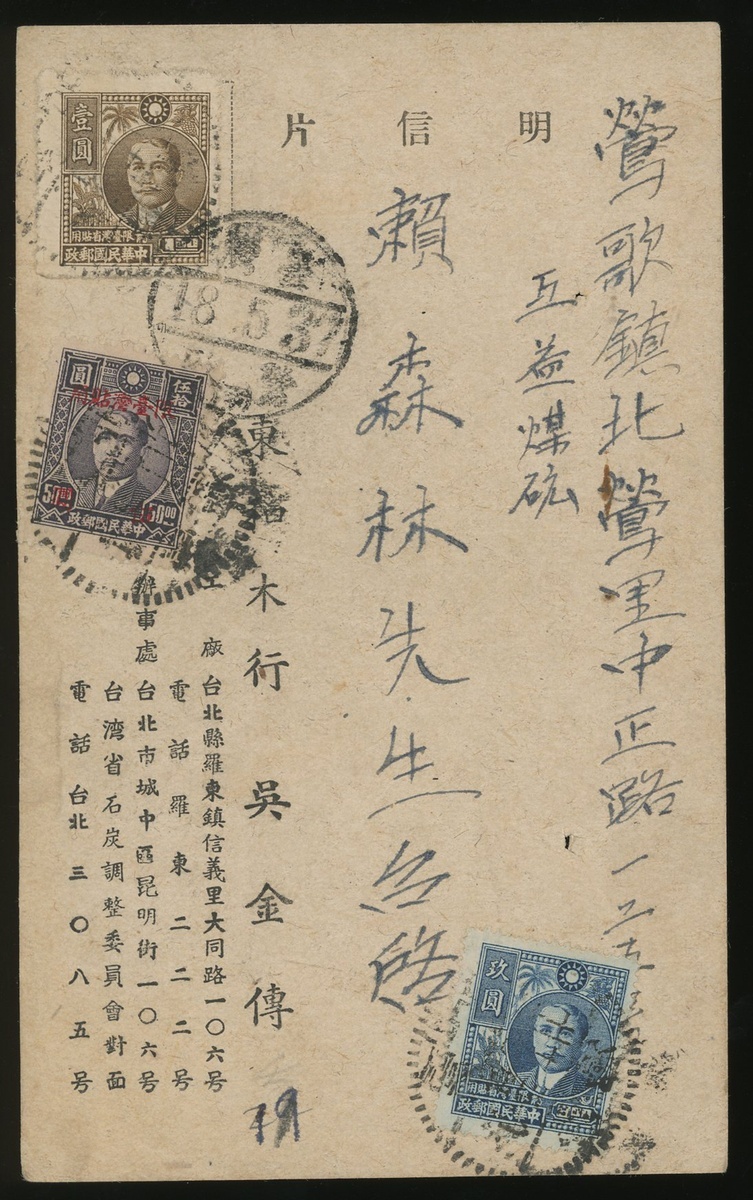 明信片
鶯歌鎮北鶯里中正路一二五
互益煤砿
賴森林先生台啓
東福木行 吳金傳
工廠 台北縣羅東鎮信義里大同路一〇六号
電話羅東二二二号
辦事處 台北市城中區昆明街一〇六号
台湾省石炭調整委員會對面
電話台北三〇八五号
壹圓
限臺灣省貼用
中華民國郵政
18.5.37
伍拾圓
限臺灣貼用
50.00
中華民國郵政
玖圓
限臺灣省貼用
中華民國郵政